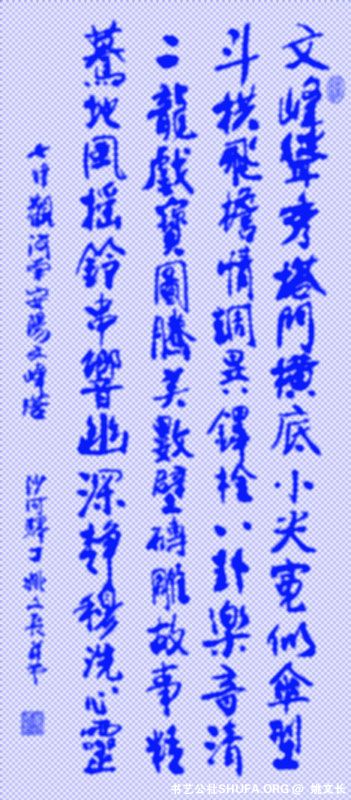 文峰聳秀塔門橫底小尖寬似傘型
斗拱飛檐情調異鐸栓八卦樂音清
二龍戲寶圖騰美數壁磚雕故事精
驀地風搖鈴串響幽深靜穆洗心靈
七律觀河南安陽文峰塔
沙河驛丁姚文長
书艺公社SHUFA.ORG @ 姚文长